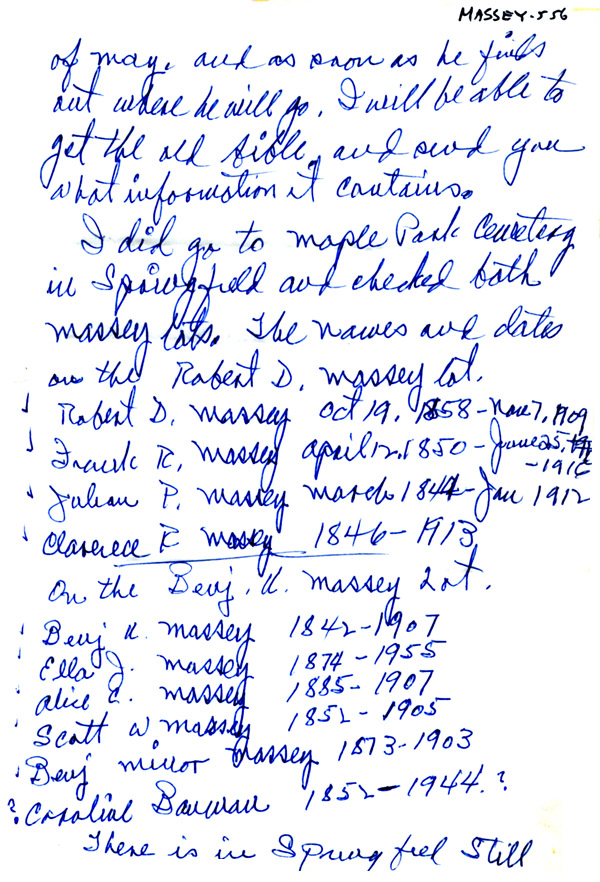 MASSEY-556
of may. and as soon as he finds
out where he will go, I will be able to
get the old bible, and send you
what information it contains.
I did go to maple Park Cemetery
in Springfield and checked both
massey lots. The names and dates
on the Robert D. massey lot.
Robert D. massey Oct 19, 1858 - Nov 7, 1909
Frank R. massey april 12, 1850 - June 25,
- 1916
Julian P. massey march 1844 - Jan 1912
Clarence R massey 1846 - 1913
On the Benj. K. massey Lot.
Benj K. massey 1842 - 1907
Ella J. massey 1874 - 1955
alice E. massey 1885 - 1907
Scott W massey 1852 - 1905
Benj minor massey 1873 - 1903
? Caroline Bauman 1852 - 1944.?
There is in Springfeel Still